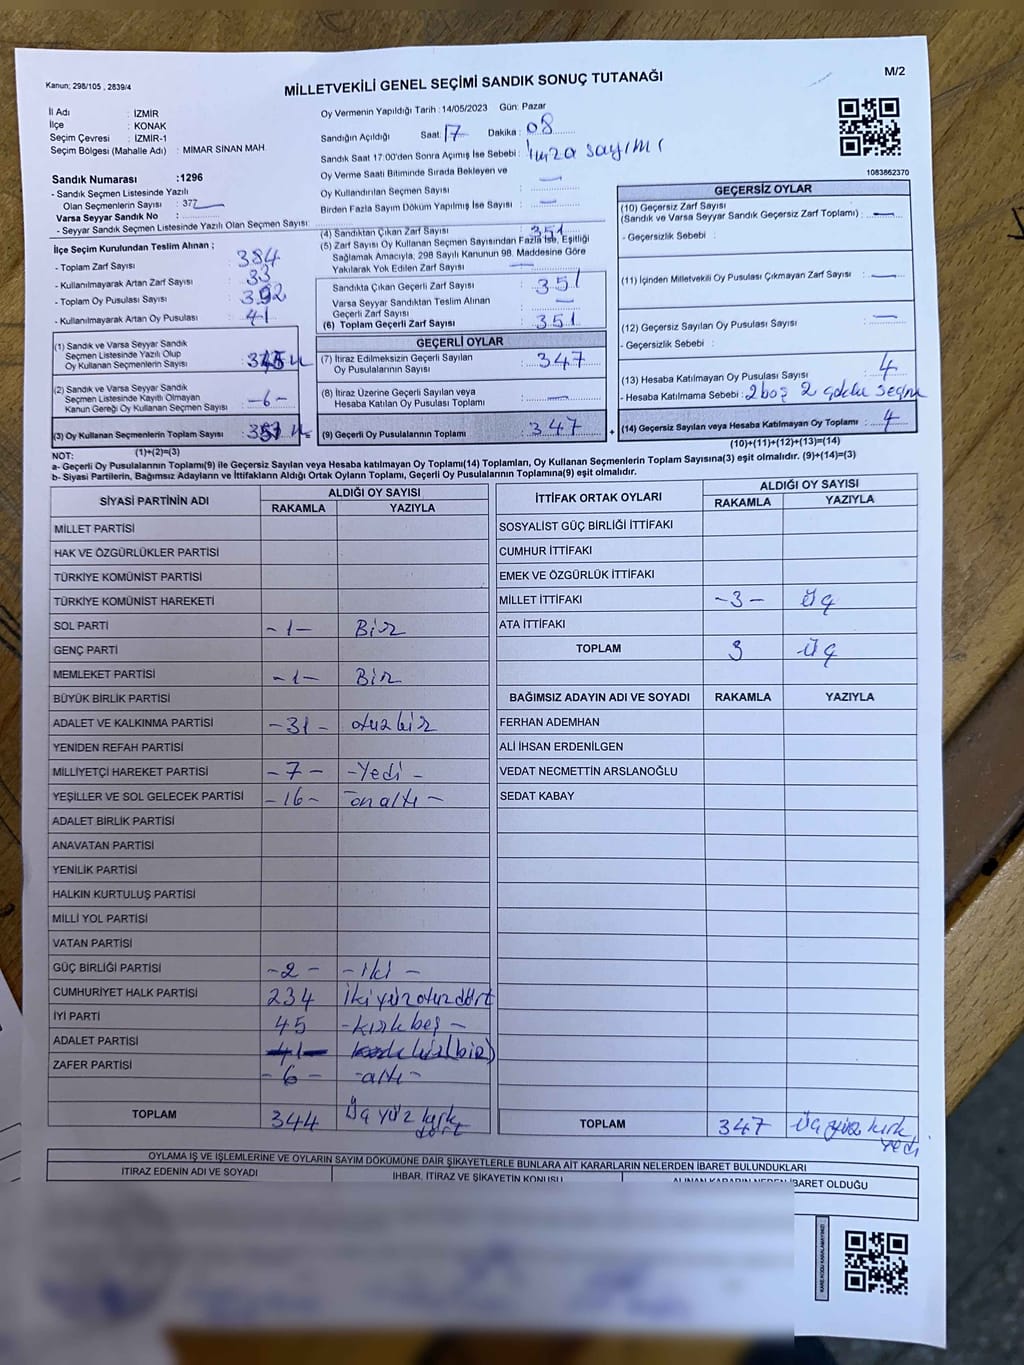 Kanun; 298/105 , 2839/4
MİLLETVEKİLİ GENEL SEÇİMİ SANDIK SONUÇ TUTANAĞI
M/2
İl Adı : İZMİR
İlçe : KONAK
Seçim Çevresi : İZMİR-1
Seçim Bölgesi (Mahalle Adı) : MİMAR SİNAN MAH.
Sandık Numarası :1296
- Sandık Seçmen Listesinde Yazılı
Olan Seçmenlerin Sayısı : 377
Varsa Seyyar Sandık No :
- Seyyar Sandık Seçmen Listesinde Yazılı Olan Seçmen Sayısı :
Oy Vermenin Yapıldığı Tarih : 14/05/2023 Gün: Pazar
Sandığın Açıldığı Saat: 17 Dakika : 08
Sandık Saat 17:00'den Sonra Açımış İse Sebebi : İmza sayımı
Oy Verme Saati Bitiminde Sırada Bekleyen ve
Oy Kullandırılan Seçmen Sayısı : —
Birden Fazla Sayım Döküm Yapılmış İse Sayısı : —
1083862370
İlçe Seçim Kurulundan Teslim Alınan ;
- Toplam Zarf Sayısı : 384
- Kullanılmayarak Artan Zarf Sayısı : 33
- Toplam Oy Pusulası Sayısı : 392
- Kullanılmayarak Artan Oy Pusulası : 41
(1) Sandık ve Varsa Seyyar Sandık
Seçmen Listesinde Yazılı Olup
Oy Kullanan Seçmenlerin Sayısı :
(2) Sandık ve Varsa Seyyar Sandık
Seçmen Listesinde Kayıtlı Olmayan
Kanun Gereği Oy Kullanan Seçmen Sayısı : -6-
(3) Oy Kullanan Seçmenlerin Toplam Sayısı :
(1)+(2)=(3)
(4) Sandıktan Çıkan Zarf Sayısı : 351
(5) Zarf Sayısı Oy Kullanan Seçmen Sayısından Fazla İse, Eşitliği
Sağlamak Amacıyla, 298 Sayılı Kanunun 98. Maddesine Göre
Yakılarak Yok Edilen Zarf Sayısı : —
Sandıkta Çıkan Geçerli Zarf Sayısı : 351
Varsa Seyyar Sandıktan Teslim Alınan
Geçerli Zarf Sayısı : —
(6) Toplam Geçerli Zarf Sayısı : 351
GEÇERLİ OYLAR
(7) İtiraz Edilmeksizin Geçerli Sayılan
Oy Pusulalarının Sayısı : 347
(8) İtiraz Üzerine Geçerli Sayılan veya
Hesaba Katılan Oy Pusulası Toplamı : —
(9) Geçerli Oy Pusulalarının Toplamı : 347 +
GEÇERSİZ OYLAR
(10) Geçersiz Zarf Sayısı
(Sandık ve Varsa Seyyar Sandık Geçersiz Zarf Toplamı) : —
- Geçersizlik Sebebi :
(11) İçinden Milletvekili Oy Pusulası Çıkmayan Zarf Sayısı : —
(12) Geçersiz Sayılan Oy Pusulası Sayısı : —
- Geçersizlik Sebebi :
(13) Hesaba Katılmayan Oy Pusulası Sayısı : 4
- Hesaba Katılmama Sebebi : 2 boş 2 çoklu seçim
(14) Geçersiz Sayılan veya Hesaba Katılmayan Oy Toplamı : 4
(10)+(11)+(12)+(13)=(14)
NOT:
a- Geçerli Oy Pusulalarının Toplamı(9) ile Geçersiz Sayılan veya Hesaba katılmayan Oy Toplamı(14) Toplamları, Oy Kullanan Seçmenlerin Toplam Sayısına(3) eşit olmalıdır. (9)+(14)=(3)
b- Siyasi Partilerin, Bağımsız Adayların ve İttifakların Aldığı Ortak Oyların Toplamı, Geçerli Oy Pusulalarının Toplamına(9) eşit olmalıdır.
SİYASİ PARTİNİN ADI ALDIĞI OY SAYISI
RAKAMLA YAZIYLA
MİLLET PARTİSİ
HAK VE ÖZGÜRLÜKLER PARTİSİ
TÜRKİYE KOMÜNİST PARTİSİ
TÜRKİYE KOMÜNİST HAREKETİ
SOL PARTİ -1- Bir
GENÇ PARTİ
MEMLEKET PARTİSİ -1- Bir
BÜYÜK BİRLİK PARTİSİ
ADALET VE KALKINMA PARTİSİ -31- otuz bir
YENİDEN REFAH PARTİSİ
MİLLİYETÇİ HAREKET PARTİSİ -7- -Yedi-
YEŞİLLER VE SOL GELECEK PARTİSİ -16- on altı-
ADALET BİRLİK PARTİSİ
ANAVATAN PARTİSİ
YENİLİK PARTİSİ
HALKIN KURTULUŞ PARTİSİ
MİLLİ YOL PARTİSİ
VATAN PARTİSİ
GÜÇ BİRLİĞİ PARTİSİ -2- -iki-
CUMHURİYET HALK PARTİSİ 234 iki yüz otuz dört
İYİ PARTİ 45 -kırk beş-
ADALET PARTİSİ -1- (bir)
ZAFER PARTİSİ -6- -altı-
TOPLAM 344 Üç yüz kırk dört
İTTİFAK ORTAK OYLARI ALDIĞI OY SAYISI
RAKAMLA YAZIYLA
SOSYALİST GÜÇ BİRLİĞİ İTTİFAKI
CUMHUR İTTİFAKI
EMEK VE ÖZGÜRLÜK İTTİFAKI
MİLLET İTTİFAKI -3- Üç
ATA İTTİFAKI
TOPLAM 3 Üç
BAĞIMSIZ ADAYIN ADI VE SOYADI RAKAMLA YAZIYLA
FERHAN ADEMHAN
ALİ İHSAN ERDENİLGEN
VEDAT NECMETTİN ARSLANOĞLU
SEDAT KABAY
TOPLAM 347 Üç yüz kırk yedi
OYLAMA İŞ VE İŞLEMLERİNE VE OYLARIN SAYIM DÖKÜMÜNE DAİR ŞİKAYETLERLE BUNLARA AİT KARARLARIN NELERDEN İBARET BULUNDUKLARI
İTİRAZ EDENİN ADI VE SOYADI İHBAR, İTİRAZ VE ŞİKAYETİN KONUSU ALINAN KARARIN NEDEN İBARET OLDUĞU